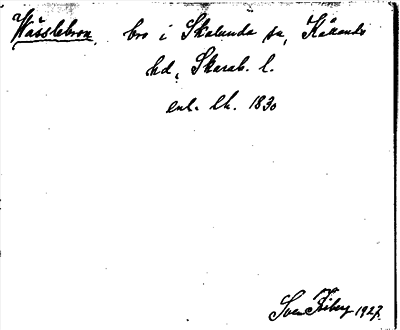 Wässlebron, bro i Skalunda sn, Kållands
hd, Skarab. l.
enl. lk. 1830
Sven 1927.